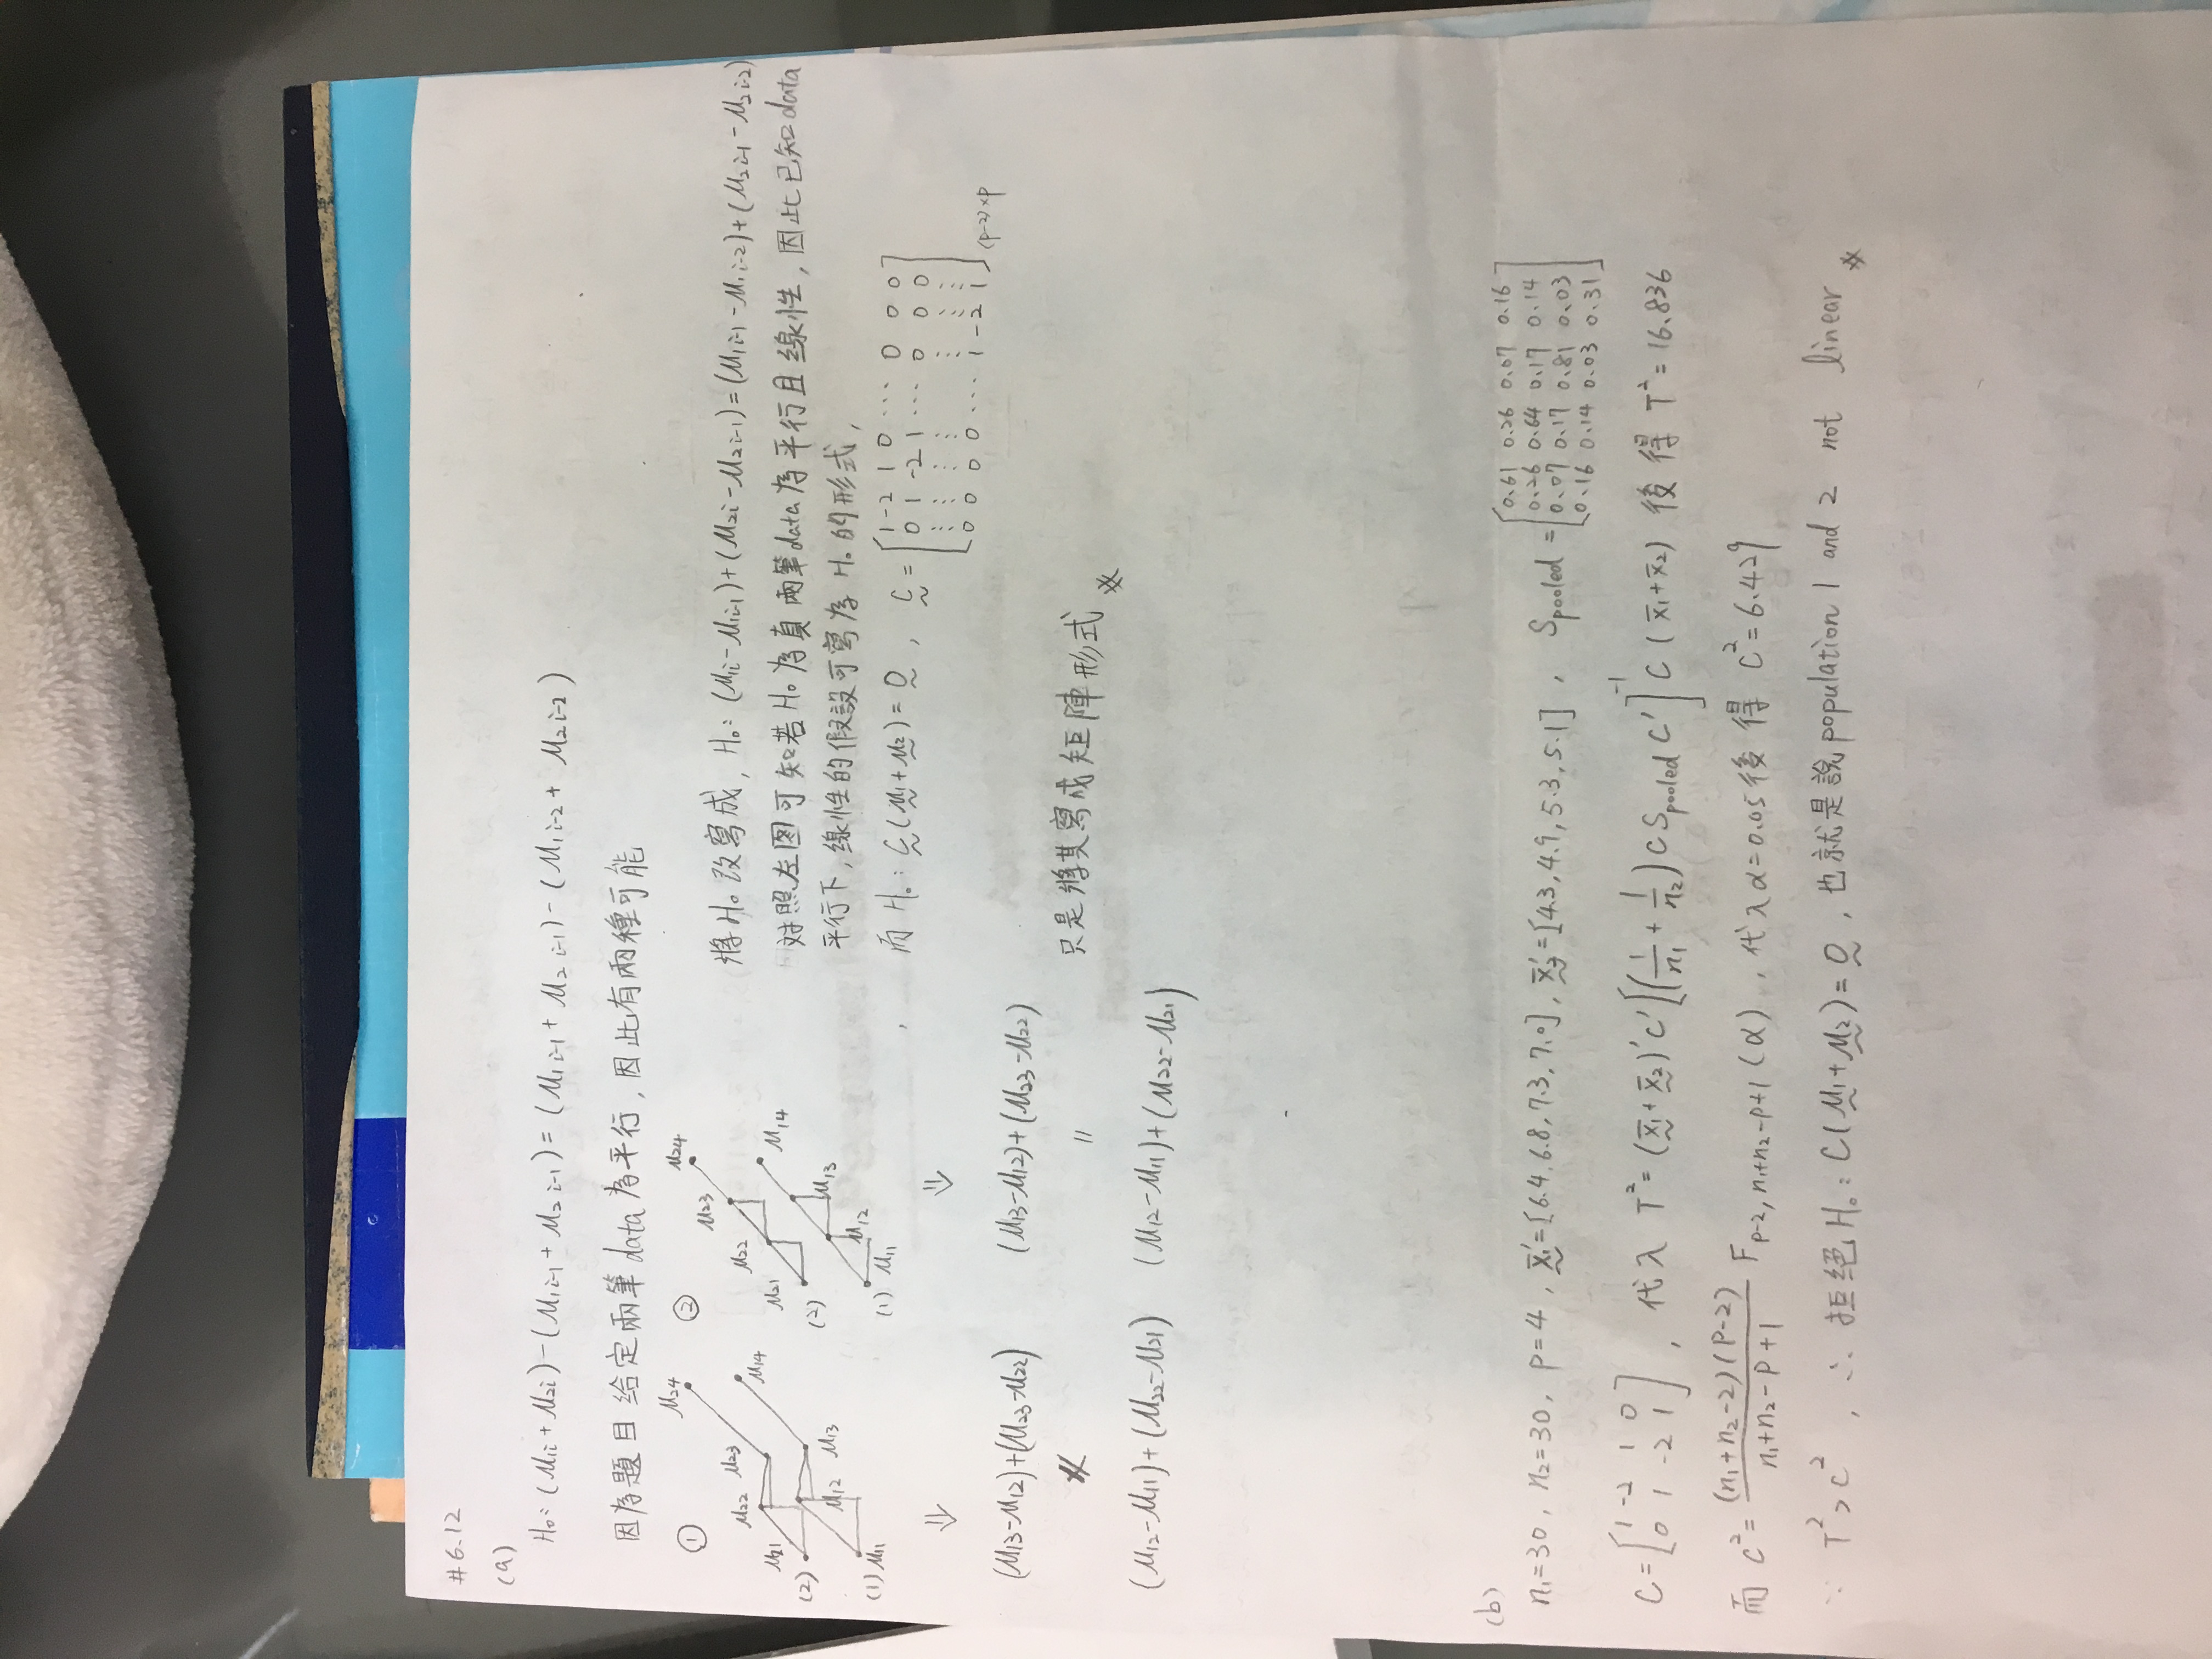 #6.12
(a)
H₀: (μ1i + μ2i) - (μ1i-1 + μ2i-1) = (μ1i-1 + μ2i-1) - (μ1i-2 + μ2i-2)
因為題目給定兩筆data為平行, 因此有兩種可能
①
μ24
μ22 μ23
μ14
μ21
(2)
μ12 μ13
(1) μ11
⇓
(μ13-μ12)+(μ23-μ22)
≠
(μ12-μ11)+(μ22-μ21)
②
μ24
μ23
μ22
μ21
μ14
(2)
μ13
μ12
(1) μ11
⇓
(μ13-μ12)+(μ23-μ22)
=
(μ12-μ11)+(μ22-μ21)
將H₀改寫成, H₀: (μ1i-μ1i-1)+(μ2i-μ2i-1)=(μ1i-1-μ1i-2)+(μ2i-1-μ2i-2)
對照左图可知若H₀為真兩筆data為平行且線性, 因此已知data
平行下, 線性的假設可寫為 H₀的形式,
而 H₀: C(μ1+μ2)=0, C = [1 -2 1 0 ⋯ 0 0 0
0 1 -2 1 ⋯ 0 0 0
⋮ ⋮ ⋮ ⋮ ⋮ ⋮ ⋮
0 0 0 0 ⋯ 1 -2 1](p-2)×p
只是將其寫成矩陣形式 ※
(b)
n₁=30, n₂=30, p=4, x̄₁'=[6.4, 6.8, 7.3, 7.0], x̄₂'=[4.3, 4.9, 5.3, 5.1], Spooled = [0.61 0.26 0.07 0.16
0.26 0.64 0.17 0.14
0.07 0.17 0.81 0.03
0.16 0.14 0.03 0.31]
C = [1 -2 1 0
0 1 -2 1], 代入 T² = (x̄₁+x̄₂)'C'[(1/n₁ + 1/n₂) C Spooled C']⁻¹ C (x̄₁+x̄₂) 後得 T²=16.836
而 c² = (n₁+n₂-2)(p-2)/(n₁+n₂-p+1) F p-2, n₁+n₂-p+1 (α), 代入α=0.05後得 c²=6.429
∵ T²>c², ∴ 拒絕H₀: C(μ1+μ2)=0, 也就是說population 1 and 2 not linear ※